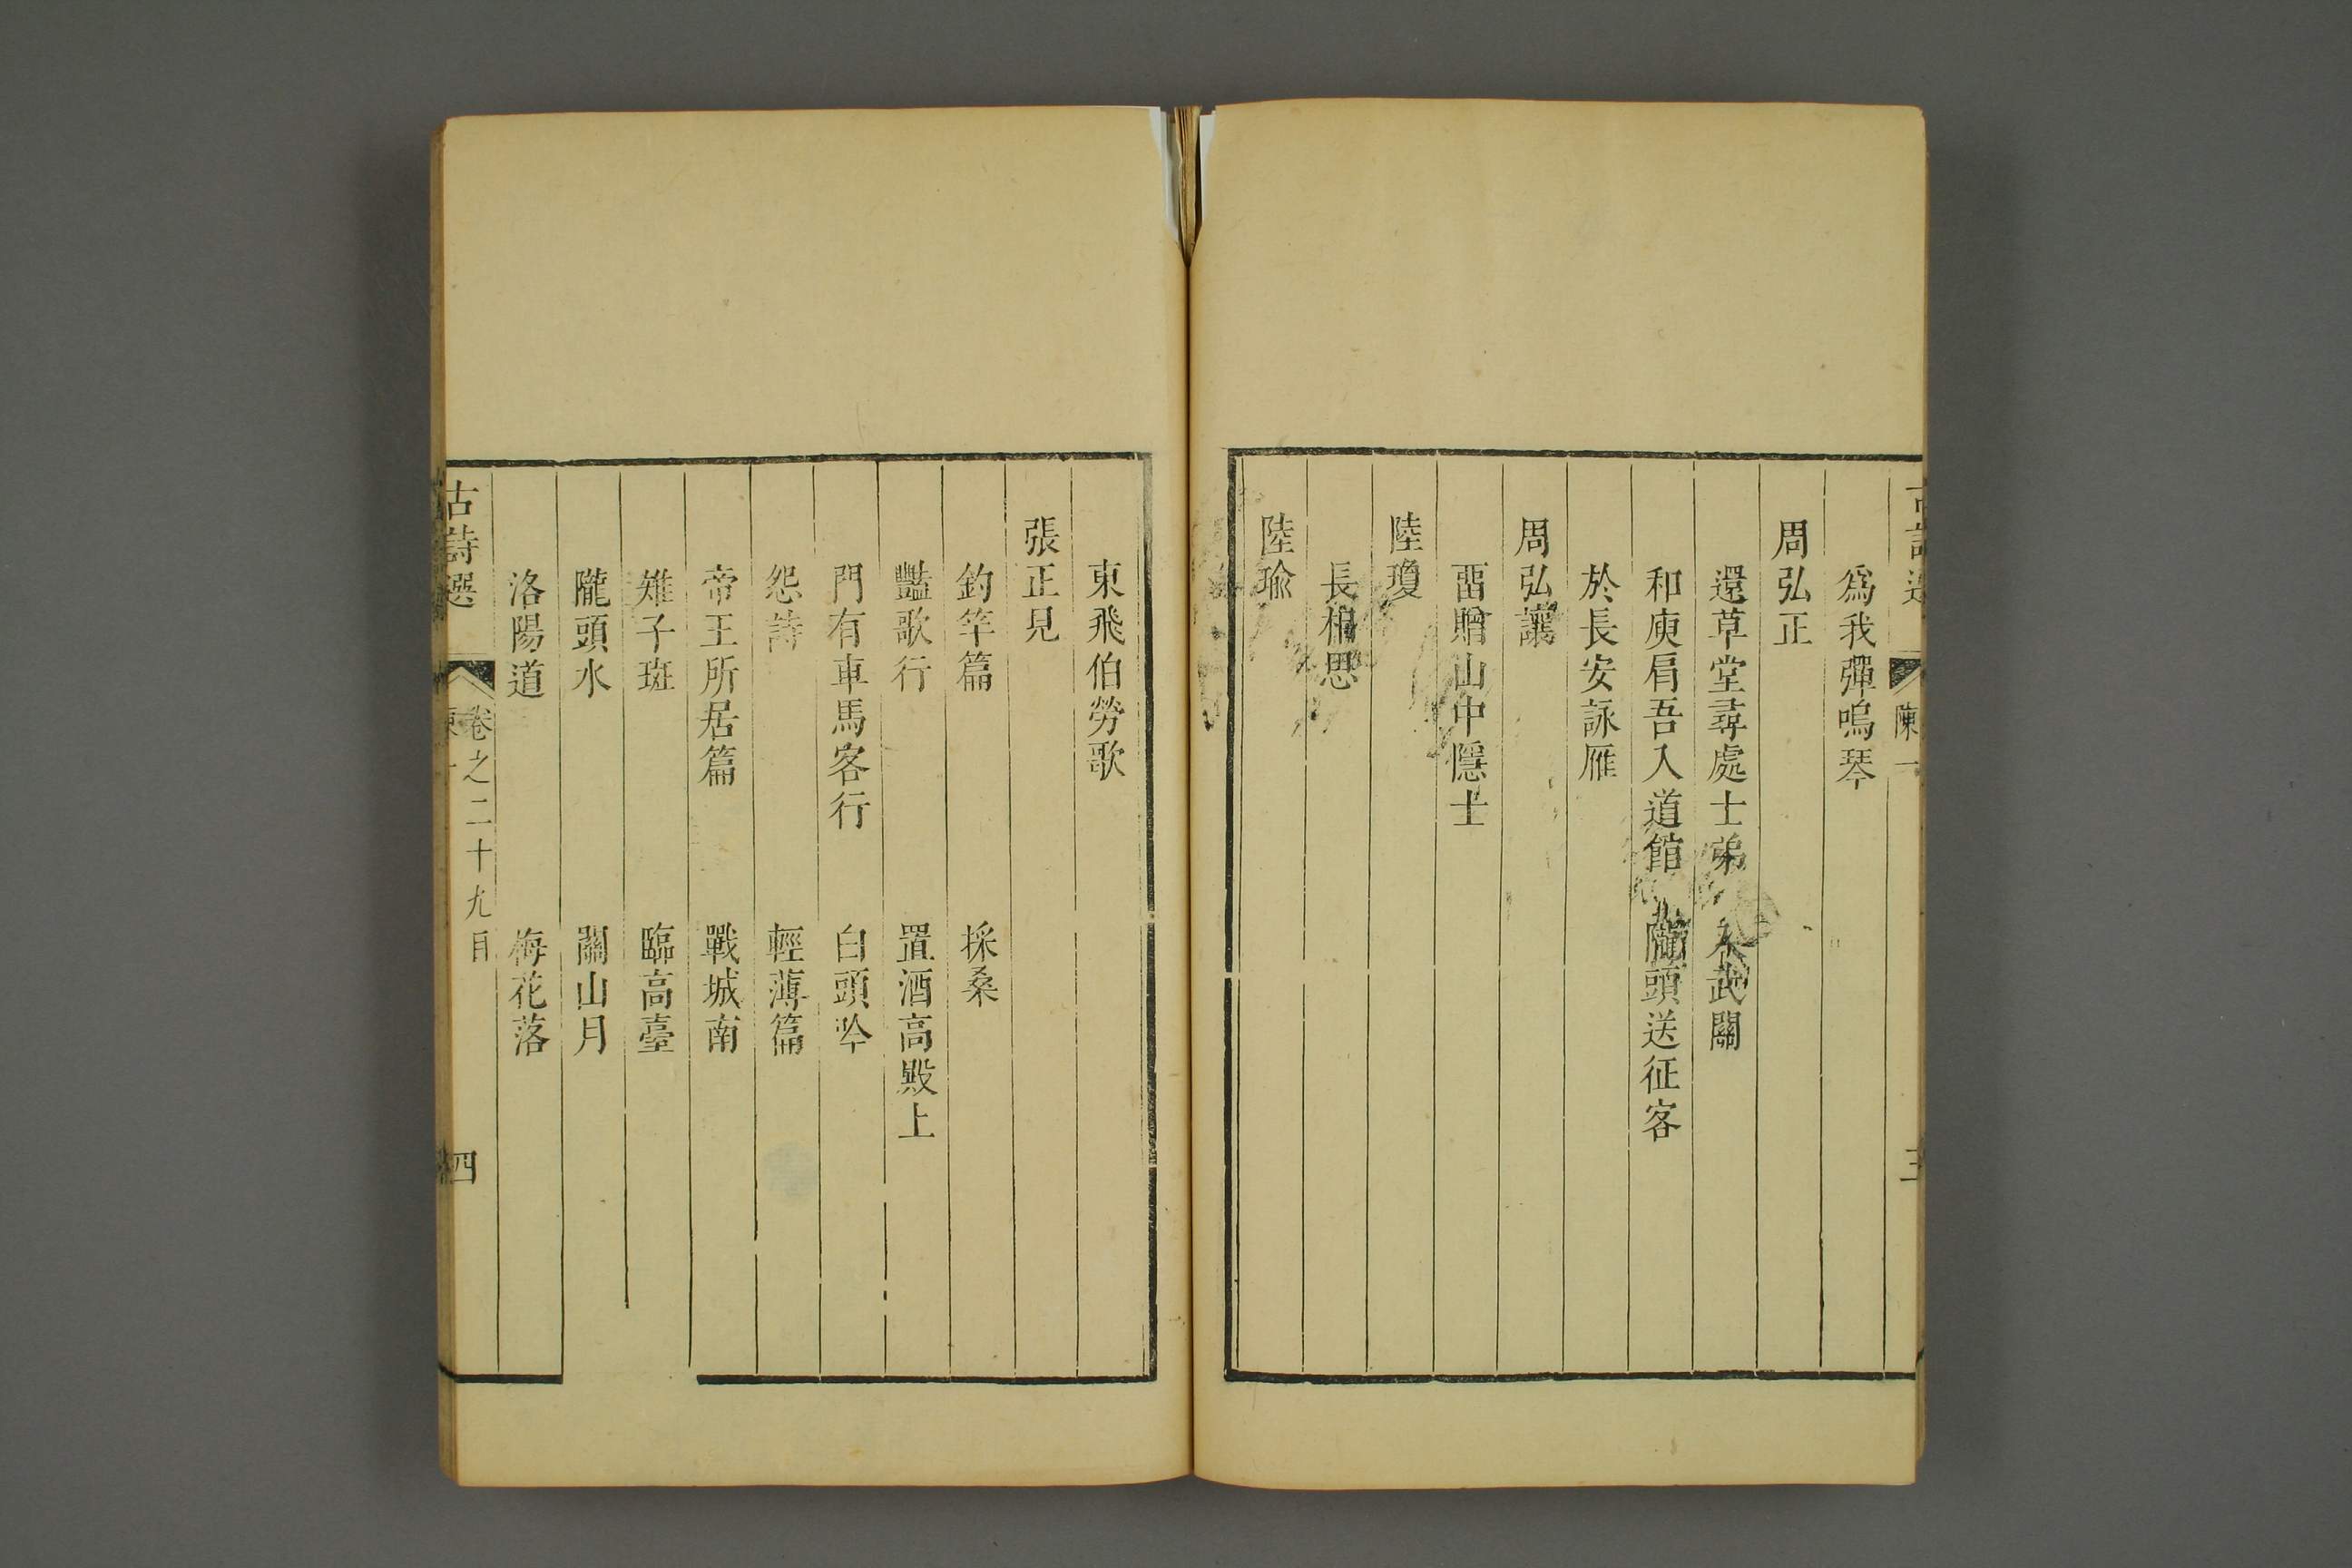 陳一
三
爲我彈鳴琴
周弘正
還草堂尋處士弟 入武關
和庾肩吾入道館 隴頭送征客
於長安詠雁
周弘讓
畱贈山中隱士
陸瓊
長相思
陸瑜
東飛伯勞歌
張正見
釣竿篇 採桑
豔歌行 置酒高殿上
門有車馬客行 白頭吟
怨詩 輕薄篇
帝王所居篇 戰城南
雉子斑 臨高臺
隴頭水 關山月
洛陽道 梅花落
古詩選 卷之二十九目
四